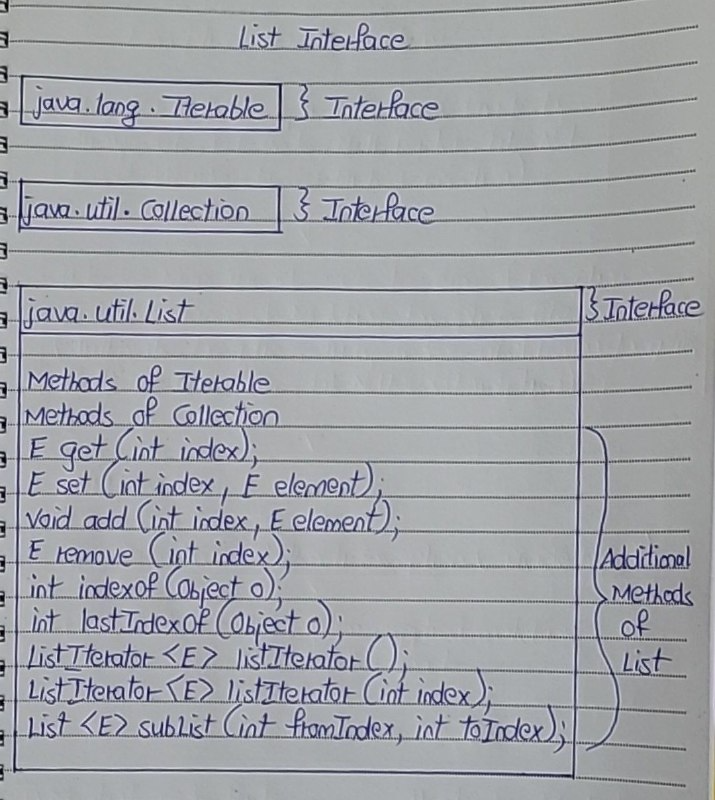 List Interface
java.lang.Iterable } Interface
java.util.Collection } Interface
java.util.List } Interface
Methods of Iterable
Methods of Collection
E get (int index);
E set (int index, E element);
void add (int index, E element);
E remove (int index);
int indexof (Object o);
int lastIndexof (Object o);
ListIterator <E> listIterator ();
ListIterator <E> listIterator (int index);
List <E> subList (int fromIndex, int toIndex);
Additional
Methods
of
List